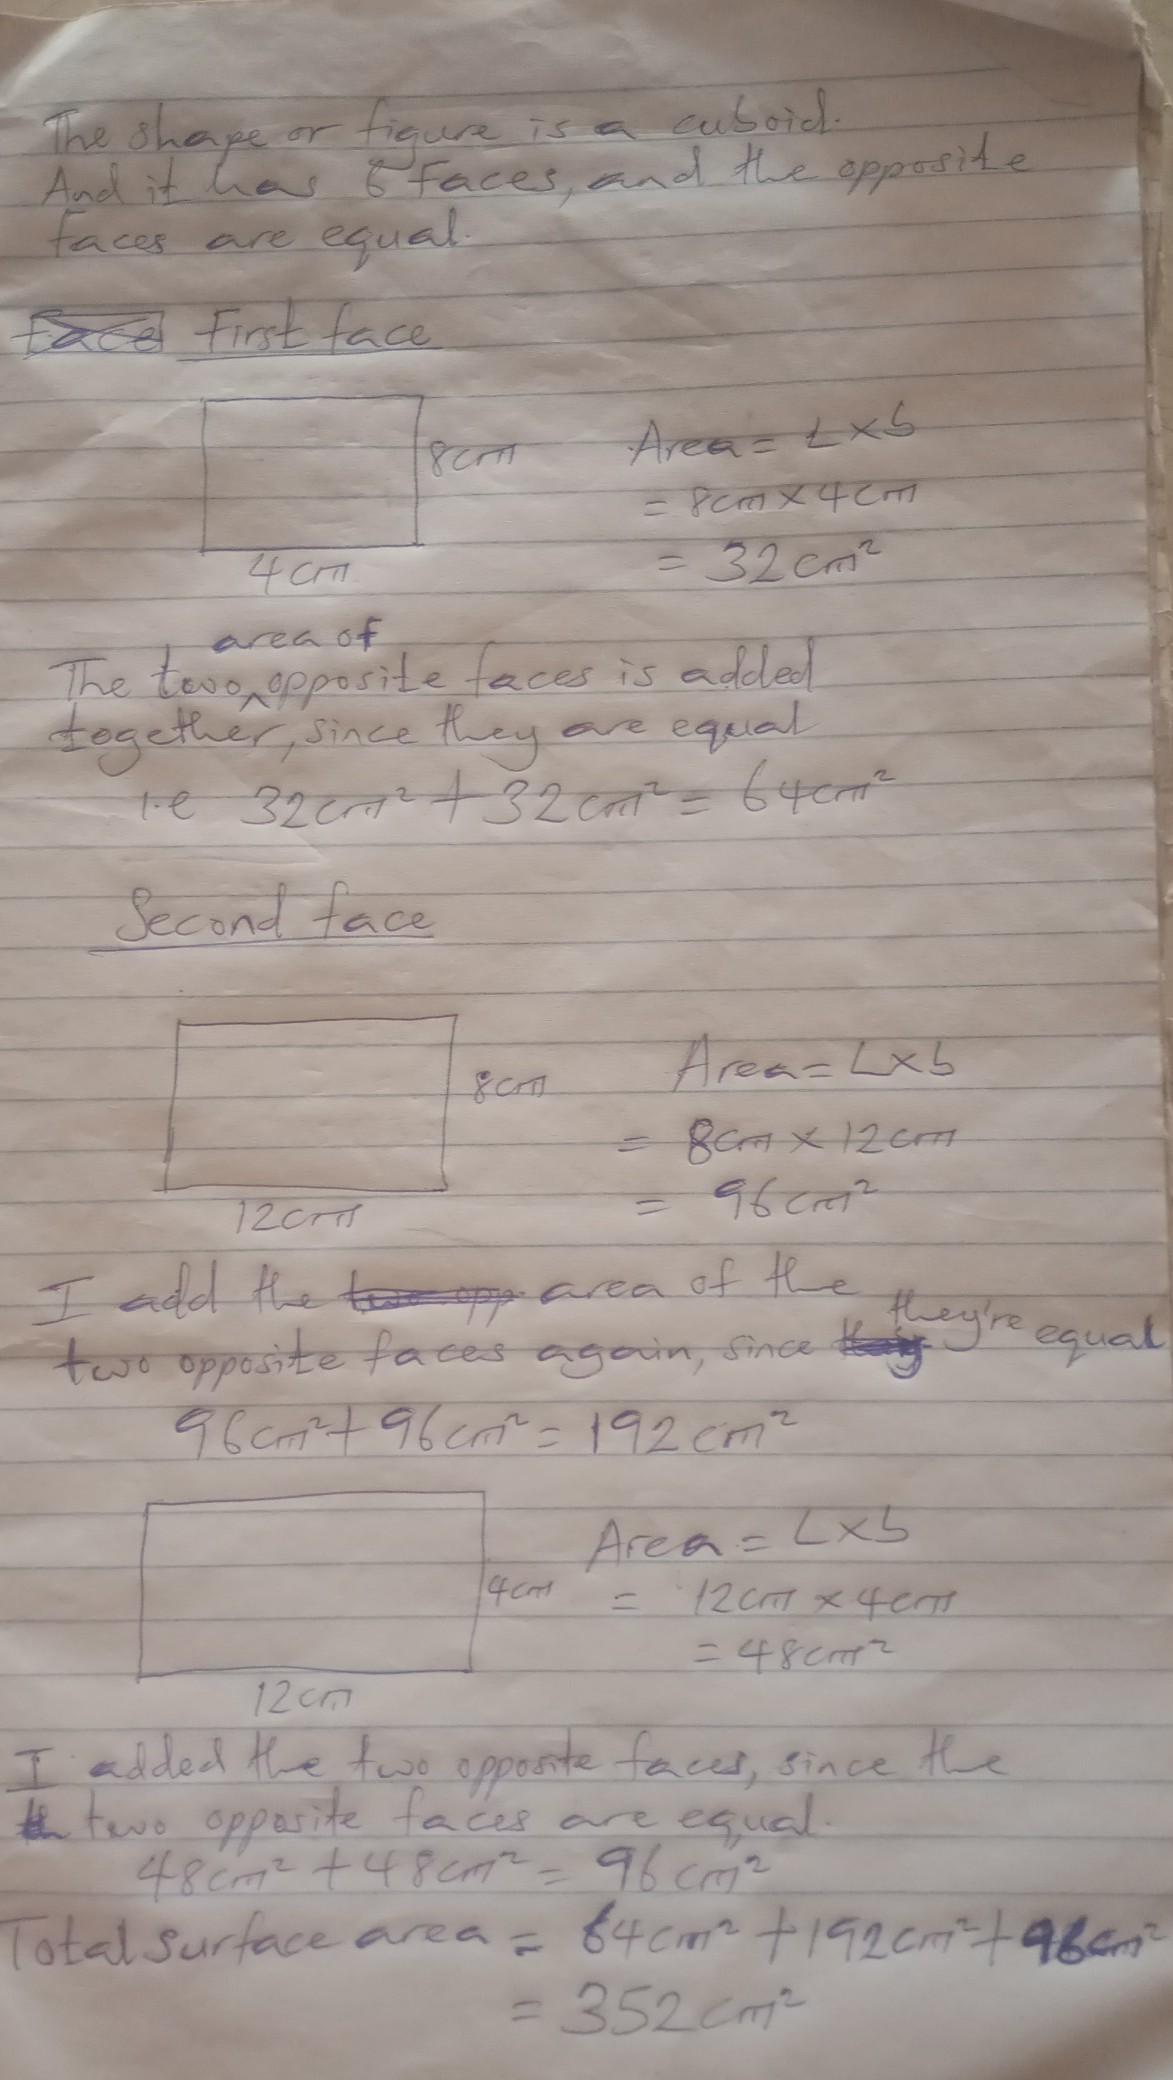 The shape or figure is a cuboid.
And it has 6 faces, and the opposite
faces are equal.
Face First face
8cm
4cm
Area = L×b
= 8cm × 4cm
= 32cm²
area of
The two ^ opposite faces is added
together, since they are equal
i.e 32cm² + 32cm² = 64cm²
Second face
8cm
12cm
Area = L×b
= 8cm × 12cm
= 96cm²
I add the two opp area of the
two opposite faces again, since they they're equal
96cm² + 96cm² = 192cm²
4cm
12cm
Area = L×b
= 12cm × 4cm
= 48cm²
I added the two opposite faces, since the
th two opposite faces are equal.
48cm² + 48cm² = 96cm²
Total surface area = 64cm² + 192cm² + 96cm²
= 352cm²